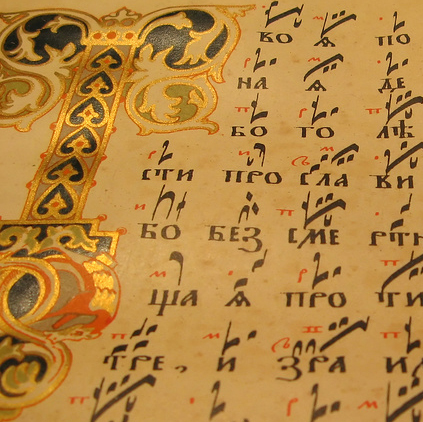 ВО Ѧ ПО
НА Ѧ ДЕ
БО ТО ЛѢ
СТИ ПРО СЛА ВИ
БО БЕЗ СМЕ РТН
ЩА Ѧ ПРО ТИ
ТРЕ, И ЗРА И